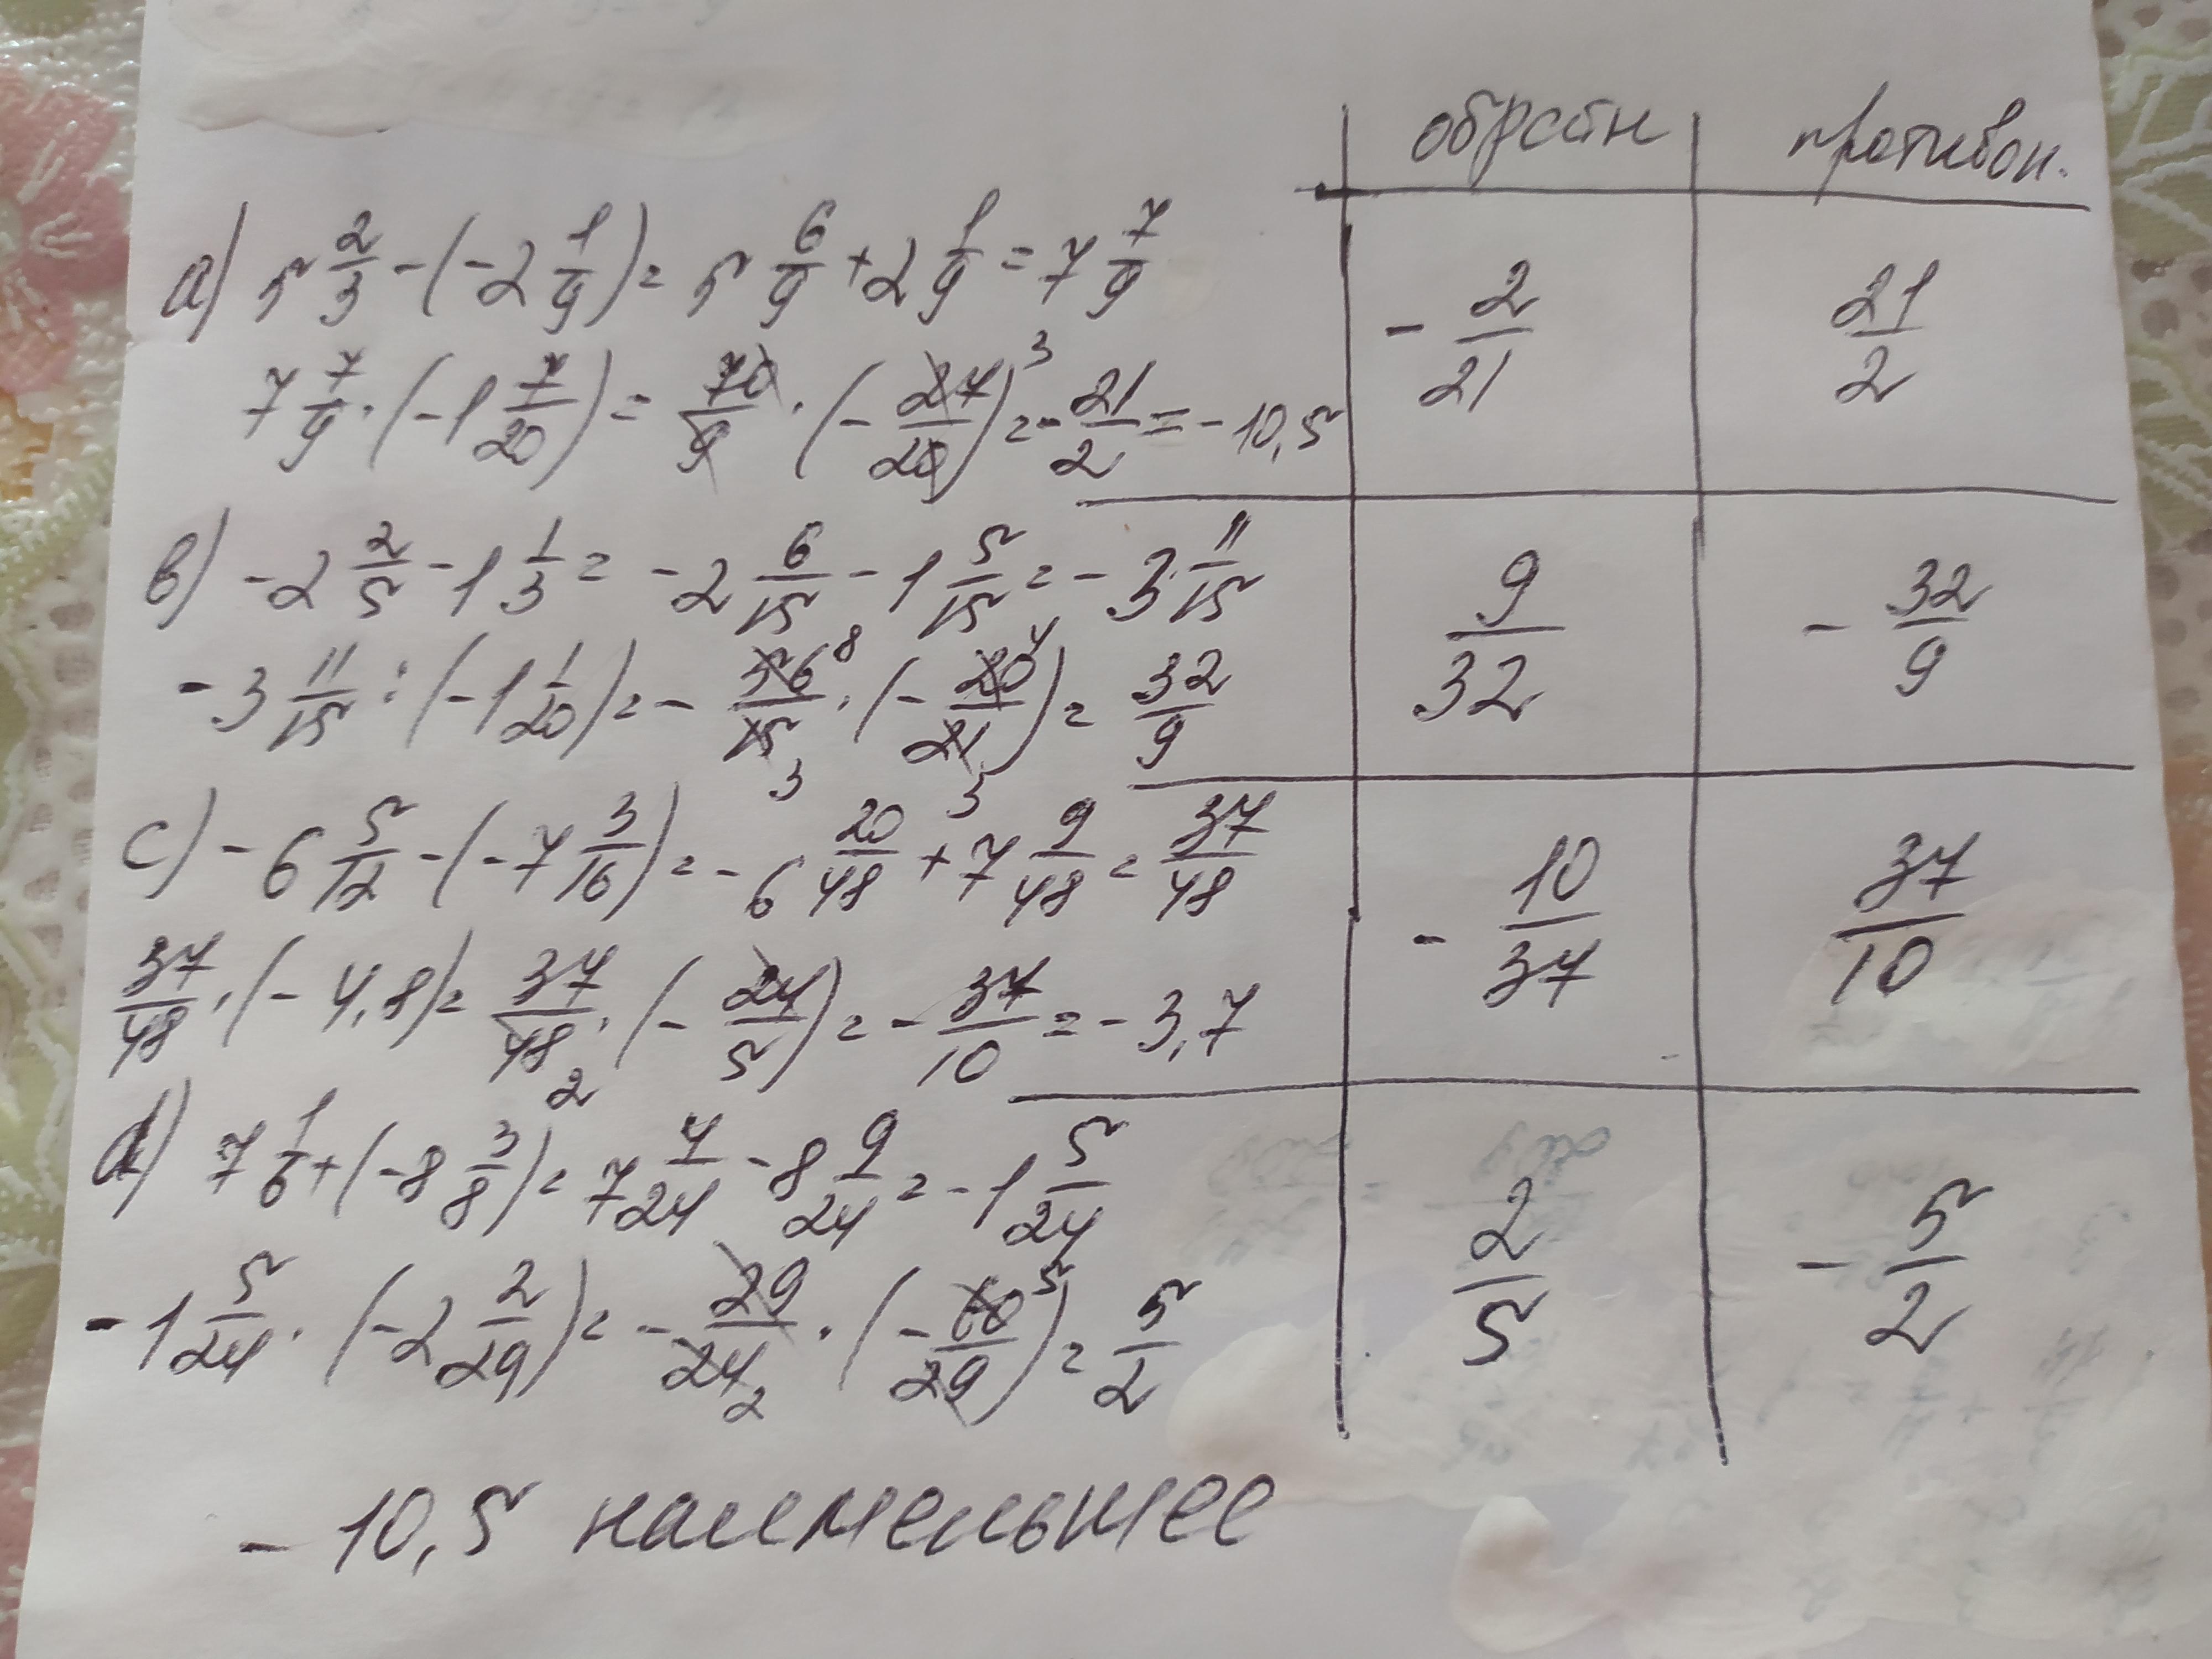 обратн | противоп.
a) 5 2/3 - (-2 1/9) = 5 6/9 + 2 1/9 = 7 7/9
7 7/9 · (-1 7/20) = 70/9 · (-27/20) 3 = -21/2 = -10,5 | -2/21 | 21/2
b) -2 2/5 - 1 1/3 = -2 6/15 - 1 5/15 = -3 11/15
-3 11/15 : (-1 1/20) = -56 8/15 3 · (-20 4/21 3) = 32/9 | 9/32 | -32/9
c) -6 5/12 - (-7 3/16) = -6 20/48 + 7 9/48 = 37/48
37/48 · (-4,8) = 37/48 2 · (-24/5) = -37/10 = -3,7 | -10/37 | 37/10
d) 7 1/6 + (-8 3/8) = 7 4/24 - 8 9/24 = -1 5/24
-1 5/24 · (-2 2/29) = -29/24 2 · (-60 5/29) = 5/2 | 2/5 | -5/2
-10,5 наименьшее